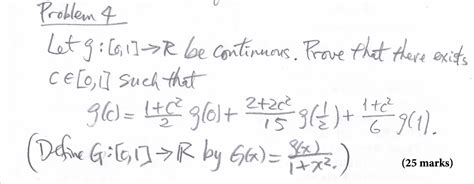 Problem 4
Let g:[0,1]→R be continuous. Prove that there exists
c∈[0,1] such that
g(c) = \frac{1+c^2}{2} g(0) + \frac{2+2c^2}{15} g(\frac{1}{2}) + \frac{1+c^2}{6} g(1).
(Define G:[0,1]→R by G(x) = \frac{g(x)}{1+x^2}.)
(25 marks)